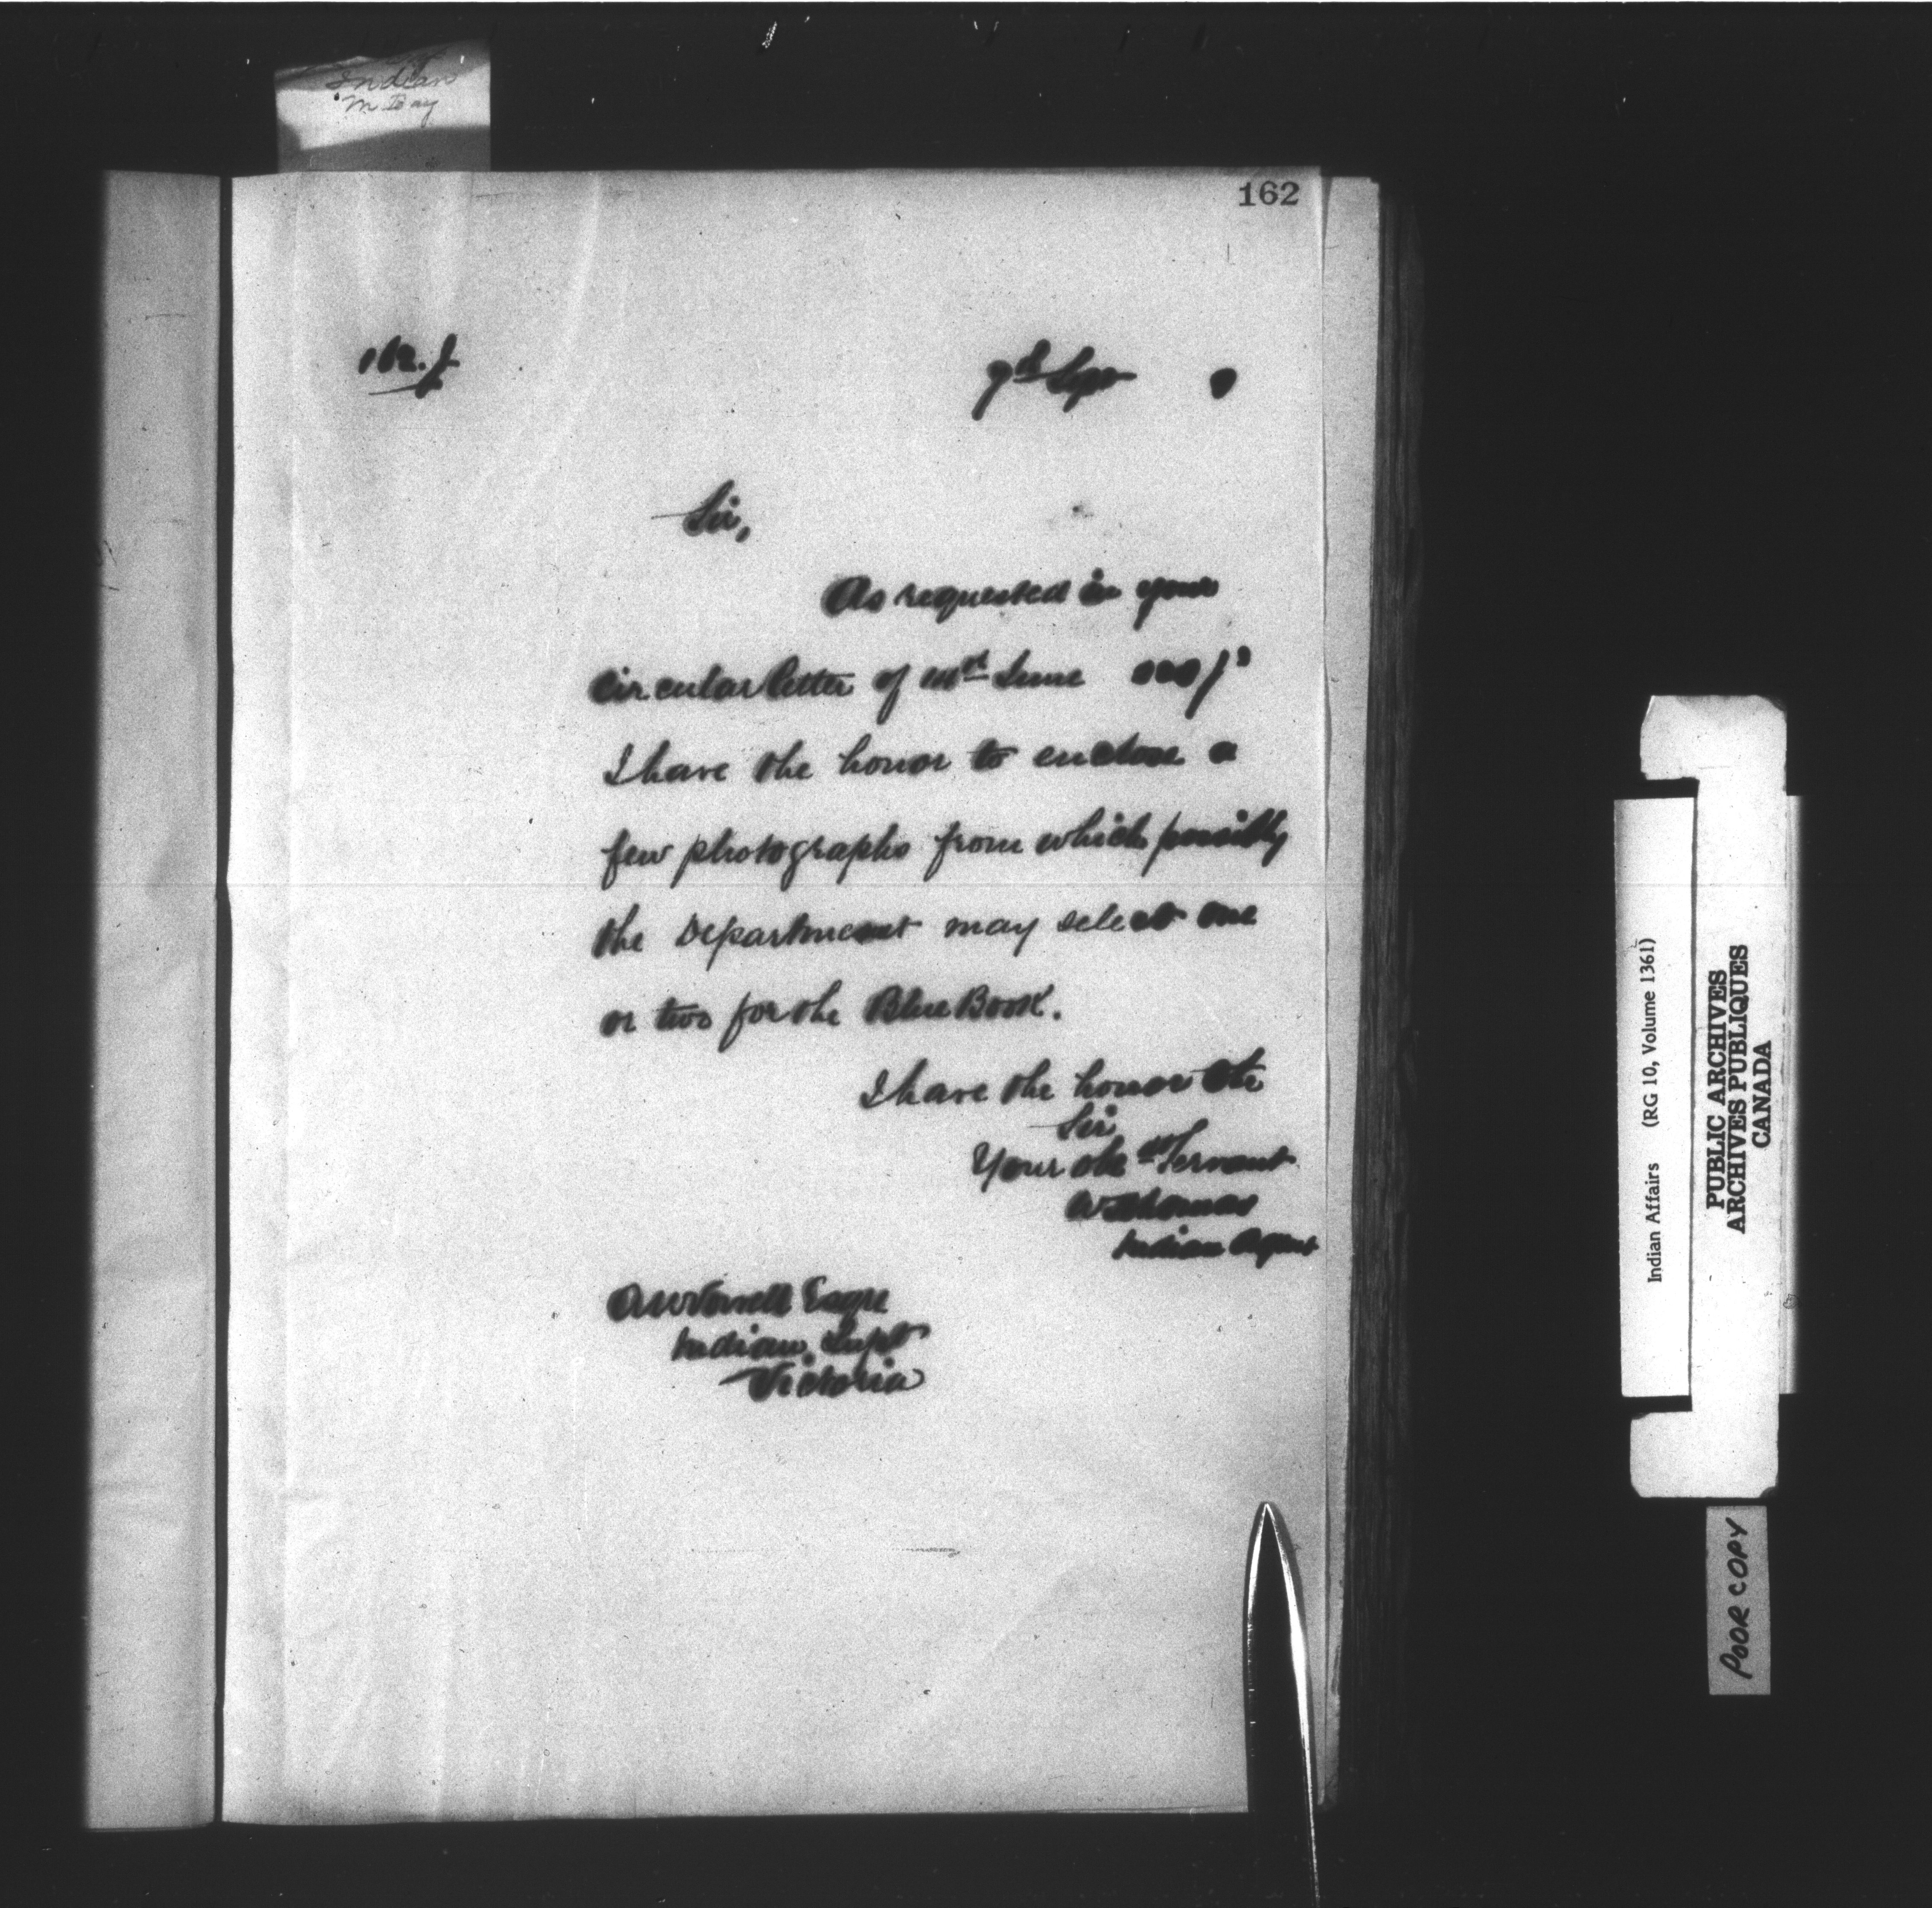 Indian
162
162. J
9th Sept
Sir,
As requested in your
circular letter of June
I have the honor to enclose a
few photographs from which possibly
the Department may select one
or two for the Blue Book.
I have the honor
Sir
Your obedt Servant
Indian Agent
A W Vowell
Indian Supt
Victoria
Indian Affairs (RG 10, Volume 1361)
PUBLIC ARCHIVES
ARCHIVES PUBLIQUES
CANADA
POOR COPY